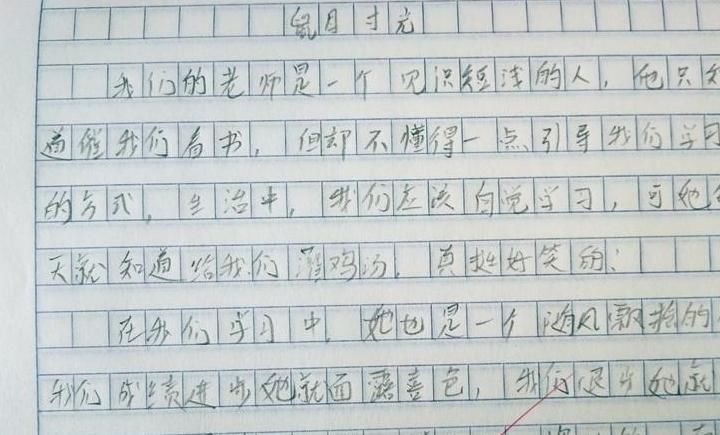 鼠目寸光
我们的老师是一个见识短浅的人，他只知
道催我们看书，但却不懂得一点引导我们学习
的方式，生活中，我们应该自觉学习，可她
天就知道给我们灌鸡汤，真挺好笑的；
在我们学习中，她也是一个随风飘摇的
我们成绩进步她就面露喜色，我们退步她就